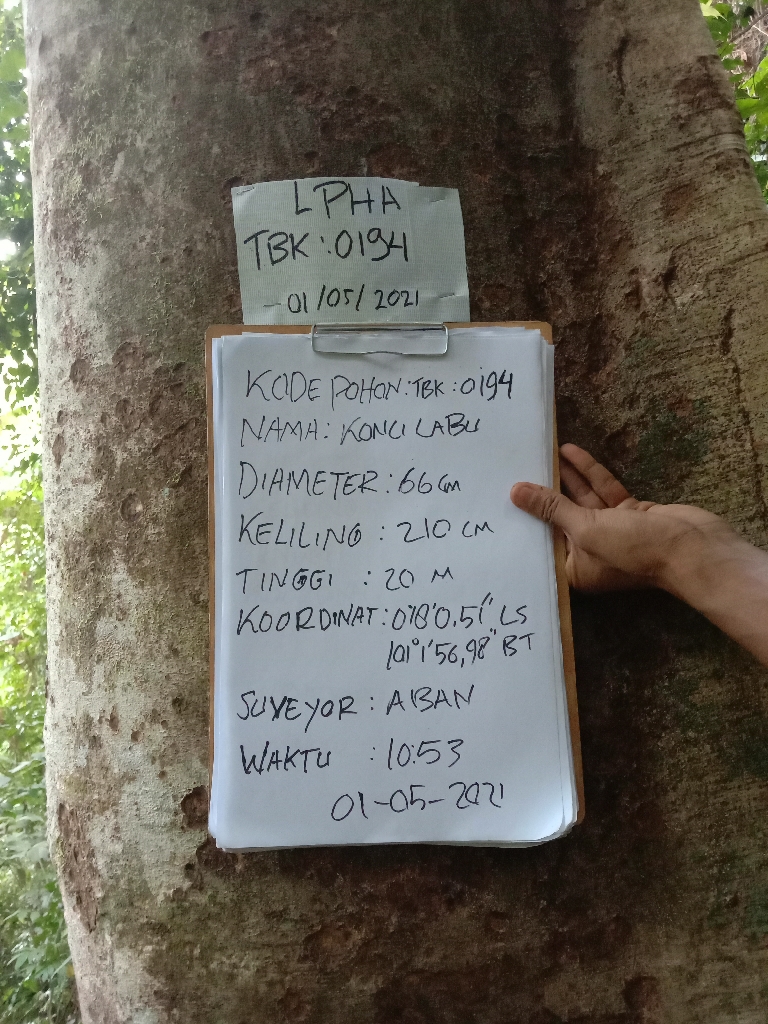 LPHA
TBK : 0194
- 01/05/2021
KODE POHON : TBK : 0194
NAMA : KONCI LABU
DIAMETER : 66 cm
KELILING : 210 CM
TINGGI : 20 M
KOORDINAT : 0°8'0,51" LS
101°1'56,98" BT
SUVEYOR : ABAN
WAKTU : 10:53
01-05-2021